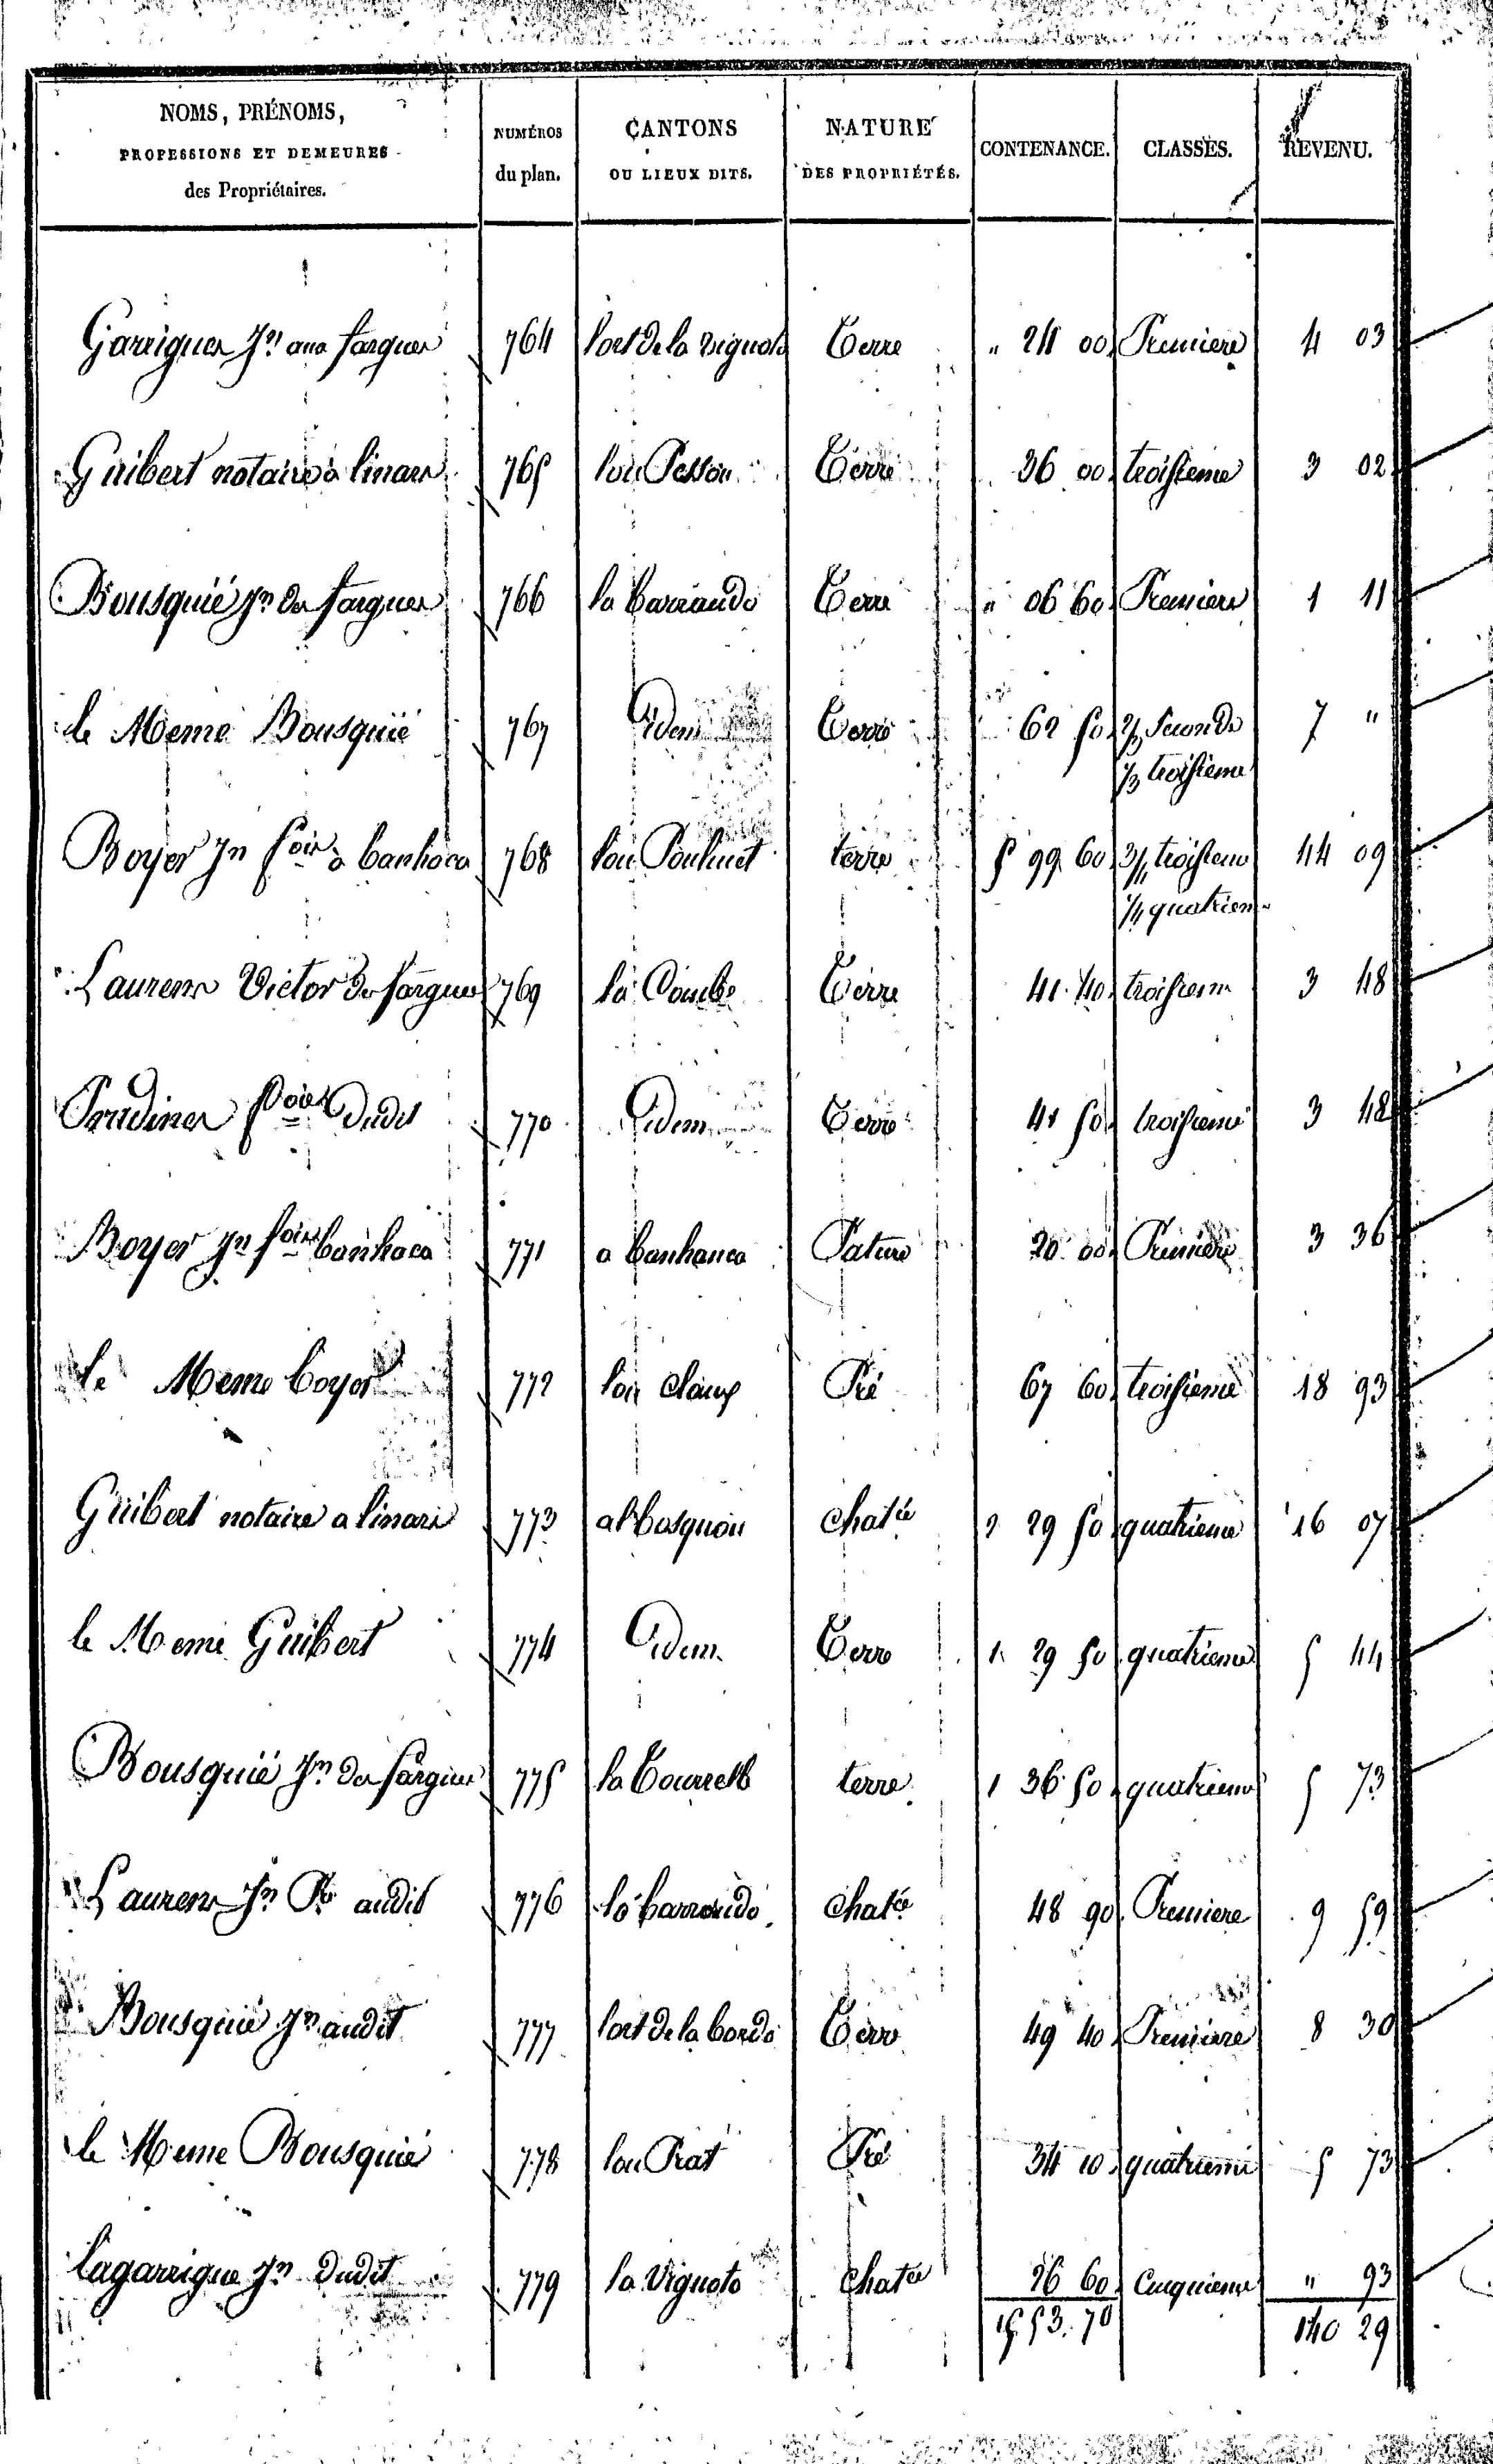 NOMS, PRÉNOMS,
PROFESSIONS ET DEMEURES
des Propriétaires.
NUMÉROS
du plan.
CANTONS
OU LIEUX DITS.
NATURE
DES PROPRIÉTÉS.
CONTENANCE.
CLASSES.
REVENU.
Garrigues Jn aux fargues 764 lort de la vignoto Terre " 24 00 Premiere 4 03
Guibert notaire a linars 765 lou Pessou Terre 36 00 troisieme 3 02
Bousquié Jn des fargues 766 la barraudo Terre " 06 60 Premiere 1 11
le Meme Bousquié 767 Idem Terre 62 50 2/3 Seconde 7 "
1/3 troisieme
Boyer Jn foix a banhaca 768 lou Poulinet terre 5 99 60 3/4 troisieme 44 09
1/4 quatrieme
Laurens Victor des fargues 769 la Combe Terre 41 40 troisieme 3 48
dudit 770 Idem Terre 41 50 troisieme 3 48
Boyer Jn foix banhaca 771 a banhaca Pature 20 00 Premiere 3 36
le Meme boyer 772 lou claux Pré 67 60 troisieme 18 93
Guibert notaire a linars 773 al bosquou chatée 2 29 50 quatrieme 16 07
le Meme Guibert 774 Idem Terre 1 29 50 quatrieme 5 44
Bousquié Jn des fargues 775 la tourrelle terre 1 36 50 quatrieme 5 73
Laurens Jn Pe audit 776 la barraudo chatée 48 90 Premiere 9 59
Bousquié Jn audit 777 lort de la bordo Terre 49 40 Premiere 8 30
le Meme Bousquié 778 lou Prat Pré 34 10 quatrieme 5 73
lagarrigue Jn dudit 779 la Vignoto chatée 26 60 Cinquieme " 93
15.53.70 140 29